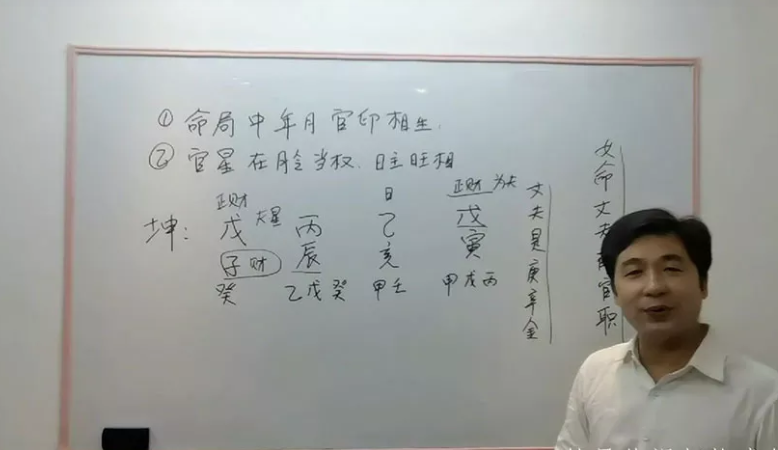 ① 命局中年月官印相生.
② 官星在月令当权.日主旺相
正财 日 正财 为夫
坤: 戊 夫星 丙 乙 戊
子财 辰 亥 寅
癸 乙戊癸 甲壬 甲戊丙
丈夫是庚辛金
女命丈夫官职